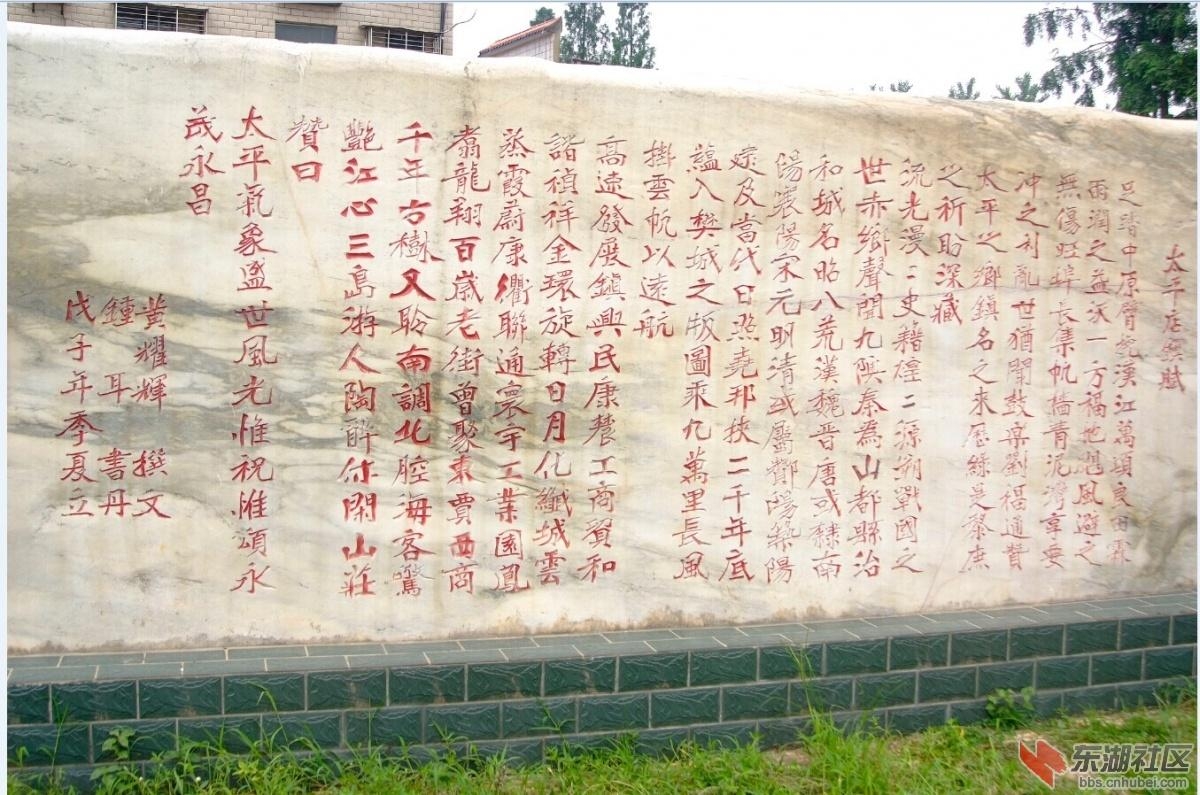 太平店鎮賦
足踏中原臂挽漢江萬頃良田霖
雨潤之益沃一方福地颶風避之
無傷旺埠長集帆檣青泥灣享要
沖之利亂世猶聞鼓樂劉福通贊
太平之鄉鎮名之來歷緣是黎庶
之祈盼深藏
流光漫二史籍 二源朔戰國之
世赤鄉聲聞九陬秦為山都縣治
和城名昭八荒漢魏晉唐或隸南
陽襄陽宋元明清或屬鄼陽築陽
逮及當代日照堯邦挾二千年底
蘊入樊城之版圖乘九萬里長風
掛雲帆以遠航
高速發展鎮興民康農工商貿和
諧禎祥金環旋轉日月化纖城雲
蒸霞蔚康衢聯通寰宇工業園鳳
翥龍翔百歲老街曾聚東賈西商
千年古樹又聆南調北腔海客驚
艷江心三島游人陶醉休閑山莊
贊曰
太平氣象盛世風光惟祝惟頌永
茂永昌
黃耀輝 撰文
鍾耳 書丹
戊子年季夏立
东湖社区
bbs.cnhubei.com